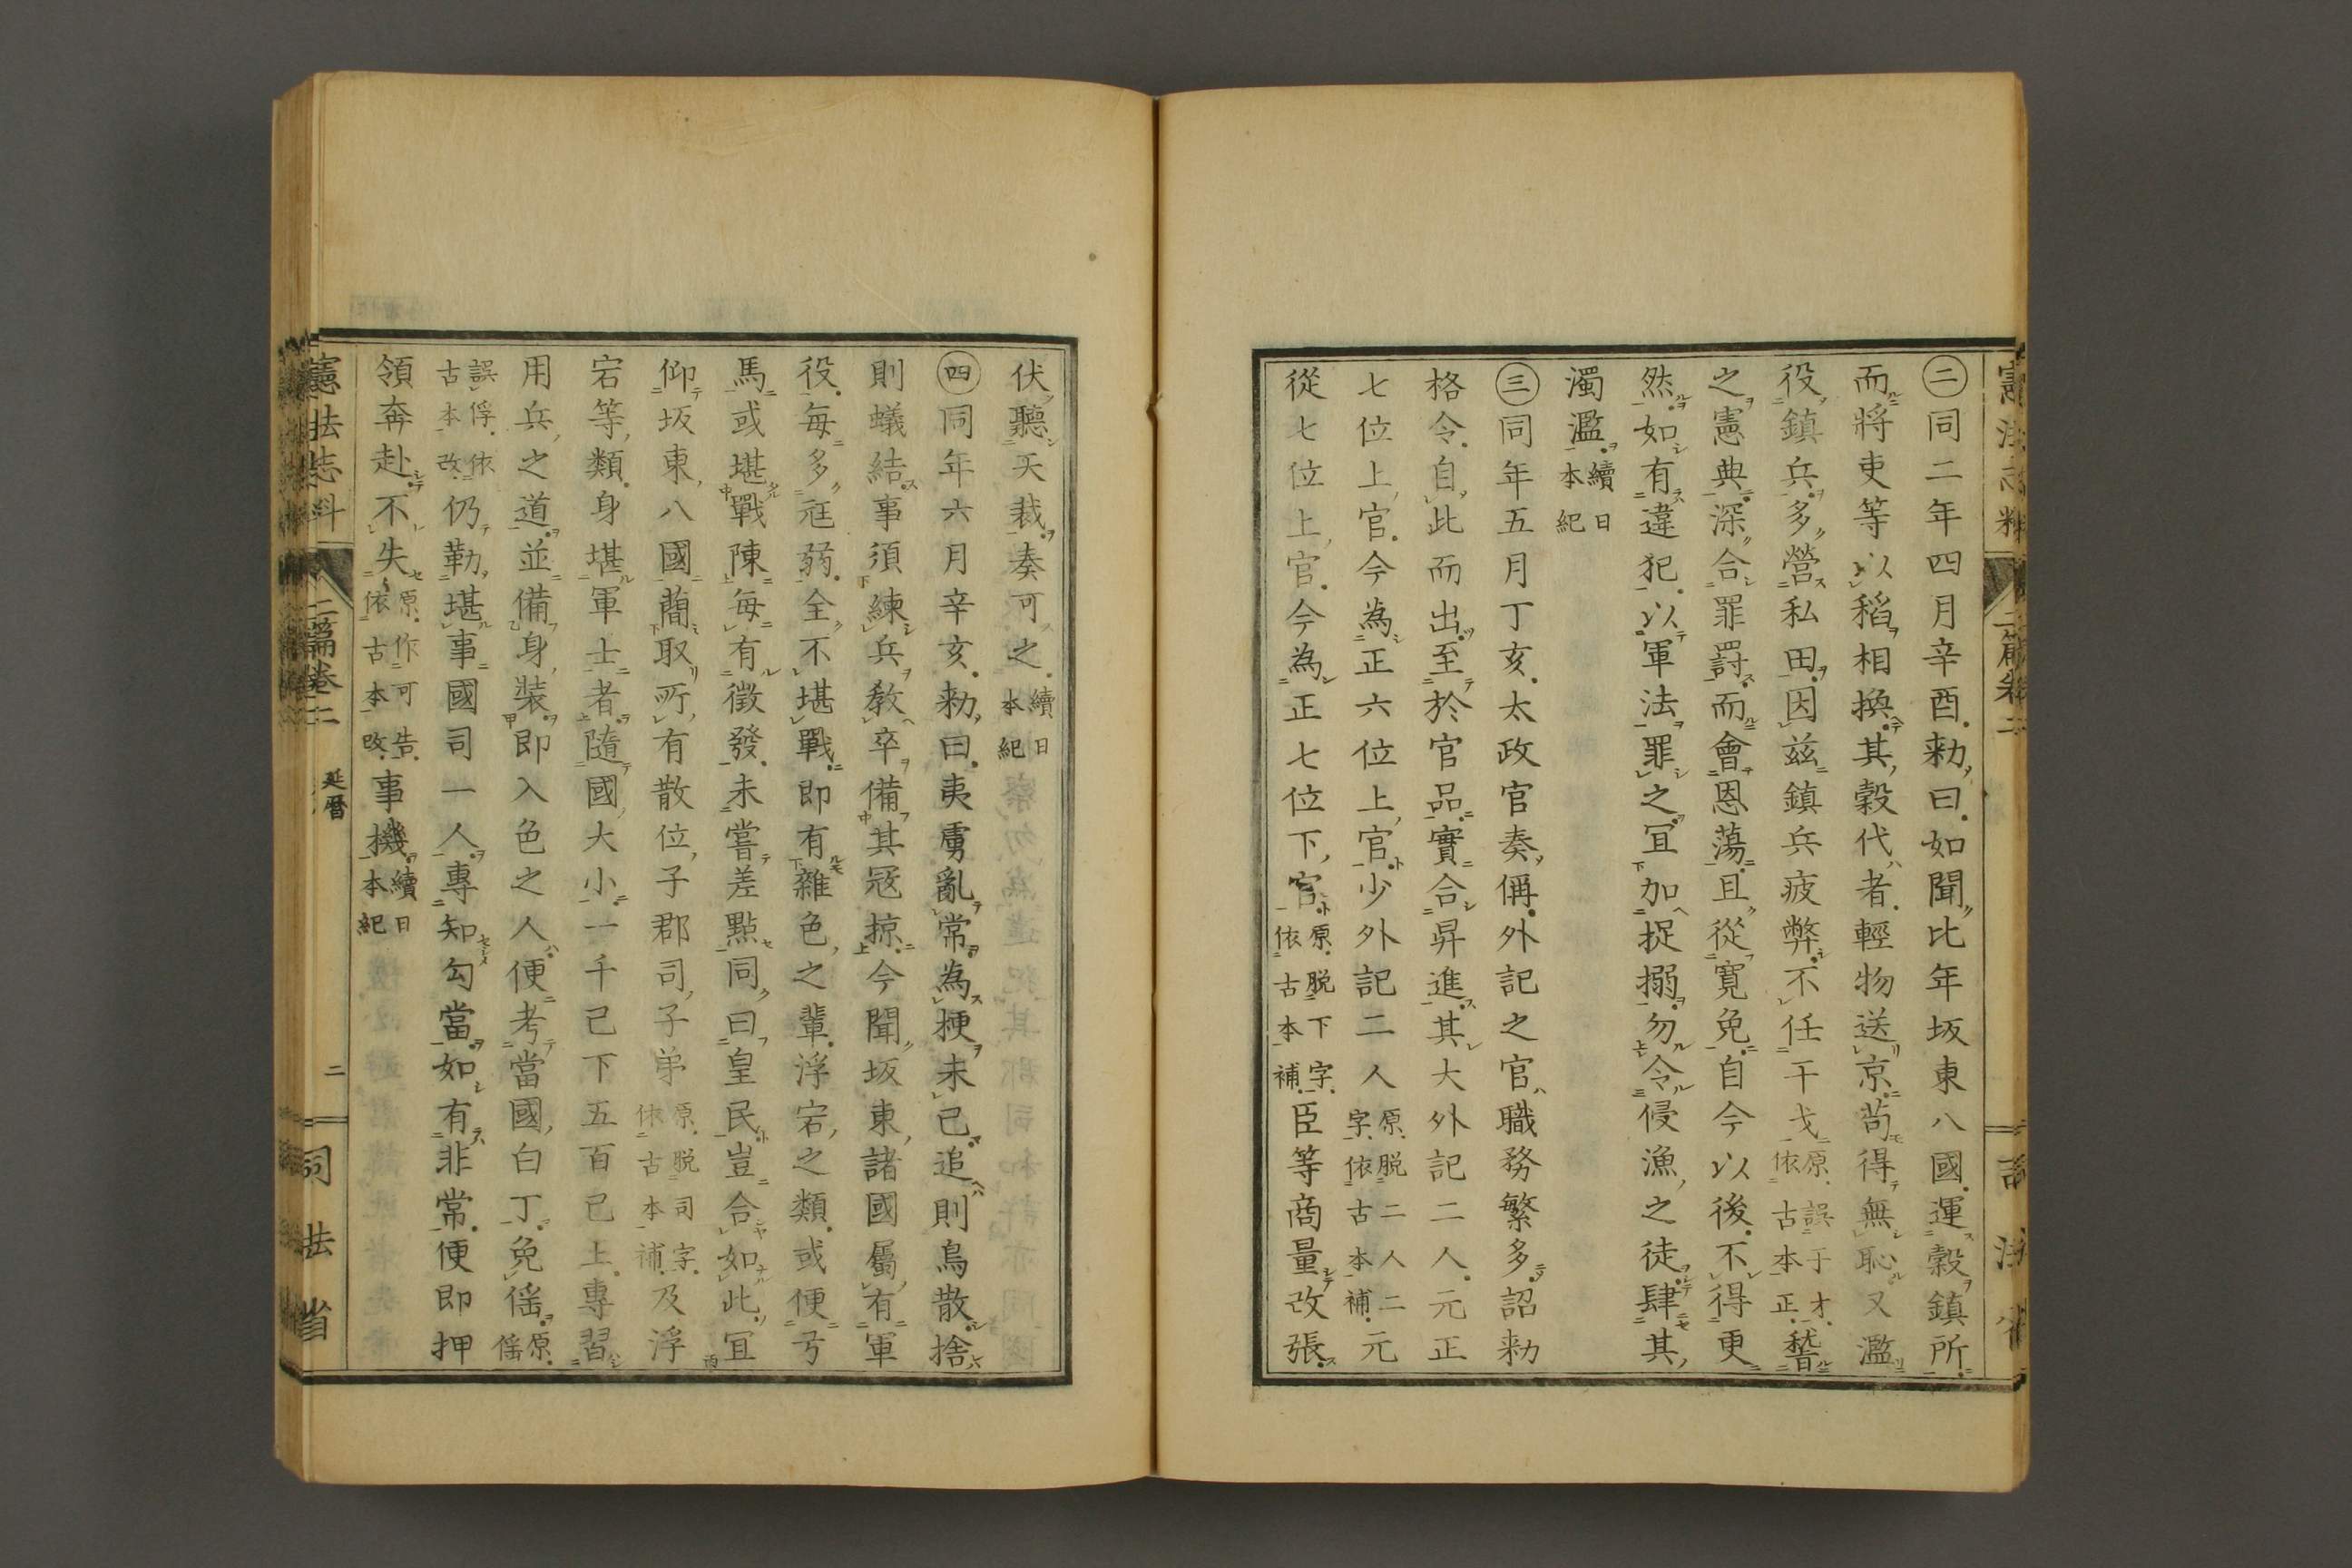 ㊁同二年四月辛酉。勅曰。如聞比年坂東八國。運穀鎮所。
而將吏等以稻相換。其穀代者。輕物送京。苟得無恥又濫
役鎮兵。多營私田。因茲鎮兵疲弊。不任干戈原誤于才。依古本正。稽
之憲典。深合罪罰。而會恩蕩。且從寬免。自今以後。不得更
然。如有違犯。以軍法罪之冝加捉搦。勿令侵漁之徒。肆其
濁濫。續日本紀
㊂同年五月丁亥。太政官奏。偁。外記之官。職務繁多。詔勅
格令。自此而出。至於官品。實合昇進。其大外記二人。元正
七位上官。今為正六位上官。少外記二人原脱二人二字。依古本補。元
從七位上官。今為正七位下官。原脱下字。依古本補。臣等商量。改張。
伏聽天裁。奏可之。續日本紀
㊃同年六月辛亥。勅曰。夷虜亂常。為梗未已。追則鳥散。捨
則蟻結。事須練兵。教卒備其冦掠。今聞坂東諸國屬有軍
役。每多尫弱。全不堪戰。即有雜色之輩。浮宕之類。或便弓
馬或堪戰陳。每有徵發。未嘗差點。同曰皇民。豈合如此。冝
仰坂東八國。蕳取所有散位子郡司子弟原脱司字。依古本補。及浮
宕等類。身堪軍士者。隨國大小。一千已下五百已上。專習
用兵之道。並備身裝。即入色之人。便考當國。白丁免徭。原徭
誤俘。依古本改。仍勒堪事國司一人。專知勾當。如有非常。便即押
領奔赴。不失原作可告。依古本改。事機。續日本紀
憲法志料 二篇卷二 延曆 二 司法省